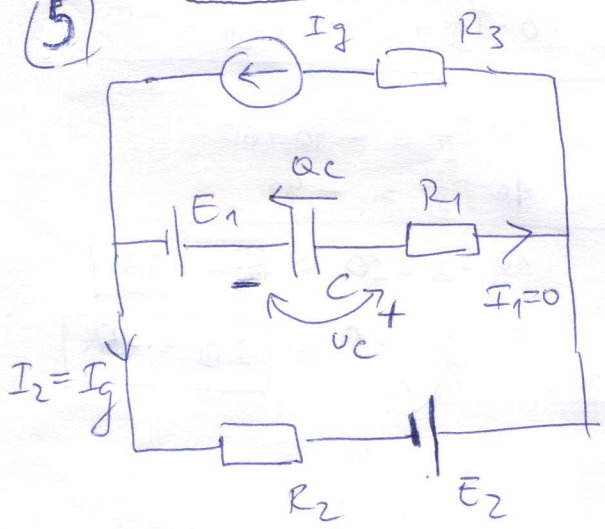 5
Ig R3
Qc
E1 R1
- C + I1=0
uc
I2=Ig
R2 E2